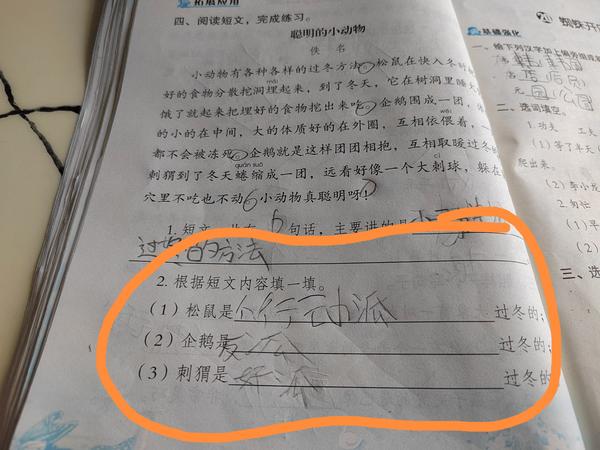 拓展应用
四、阅读短文，完成练习。
聪明的小动物
佚 名
小动物有各种各样的过冬方法。松鼠在快入冬时
好的食物分散挖洞埋起来，到了冬天，它在树洞里睡大
饿了就起来把埋好的食物挖出来吃。企鹅围成一团，体
的小的在中间，大的体质好的在外圈，互相依偎着，
都不会被冻死。企鹅就是这样团团相抱，互相取暖过冬的
刺猬到了冬天蜷缩成一团，远看好像一个大刺球，躲在
穴里不吃也不动。小动物真聪明呀！
1. 短文一共有 6 句话，主要讲的是小动物
过冬的方法
2. 根据短文内容填一填。
（1）松鼠是 过冬的；
（2）企鹅是 过冬的；
（3）刺猬是 过冬的
基础强化
21 蜘蛛开
一、给下列汉字加上偏旁组成
元 园 公园
二、选词填空。
1. 功夫 工夫
（1）等了半天
爬出来。
（2）李小龙
2. 匆忙
（1）早
（2）
三、选